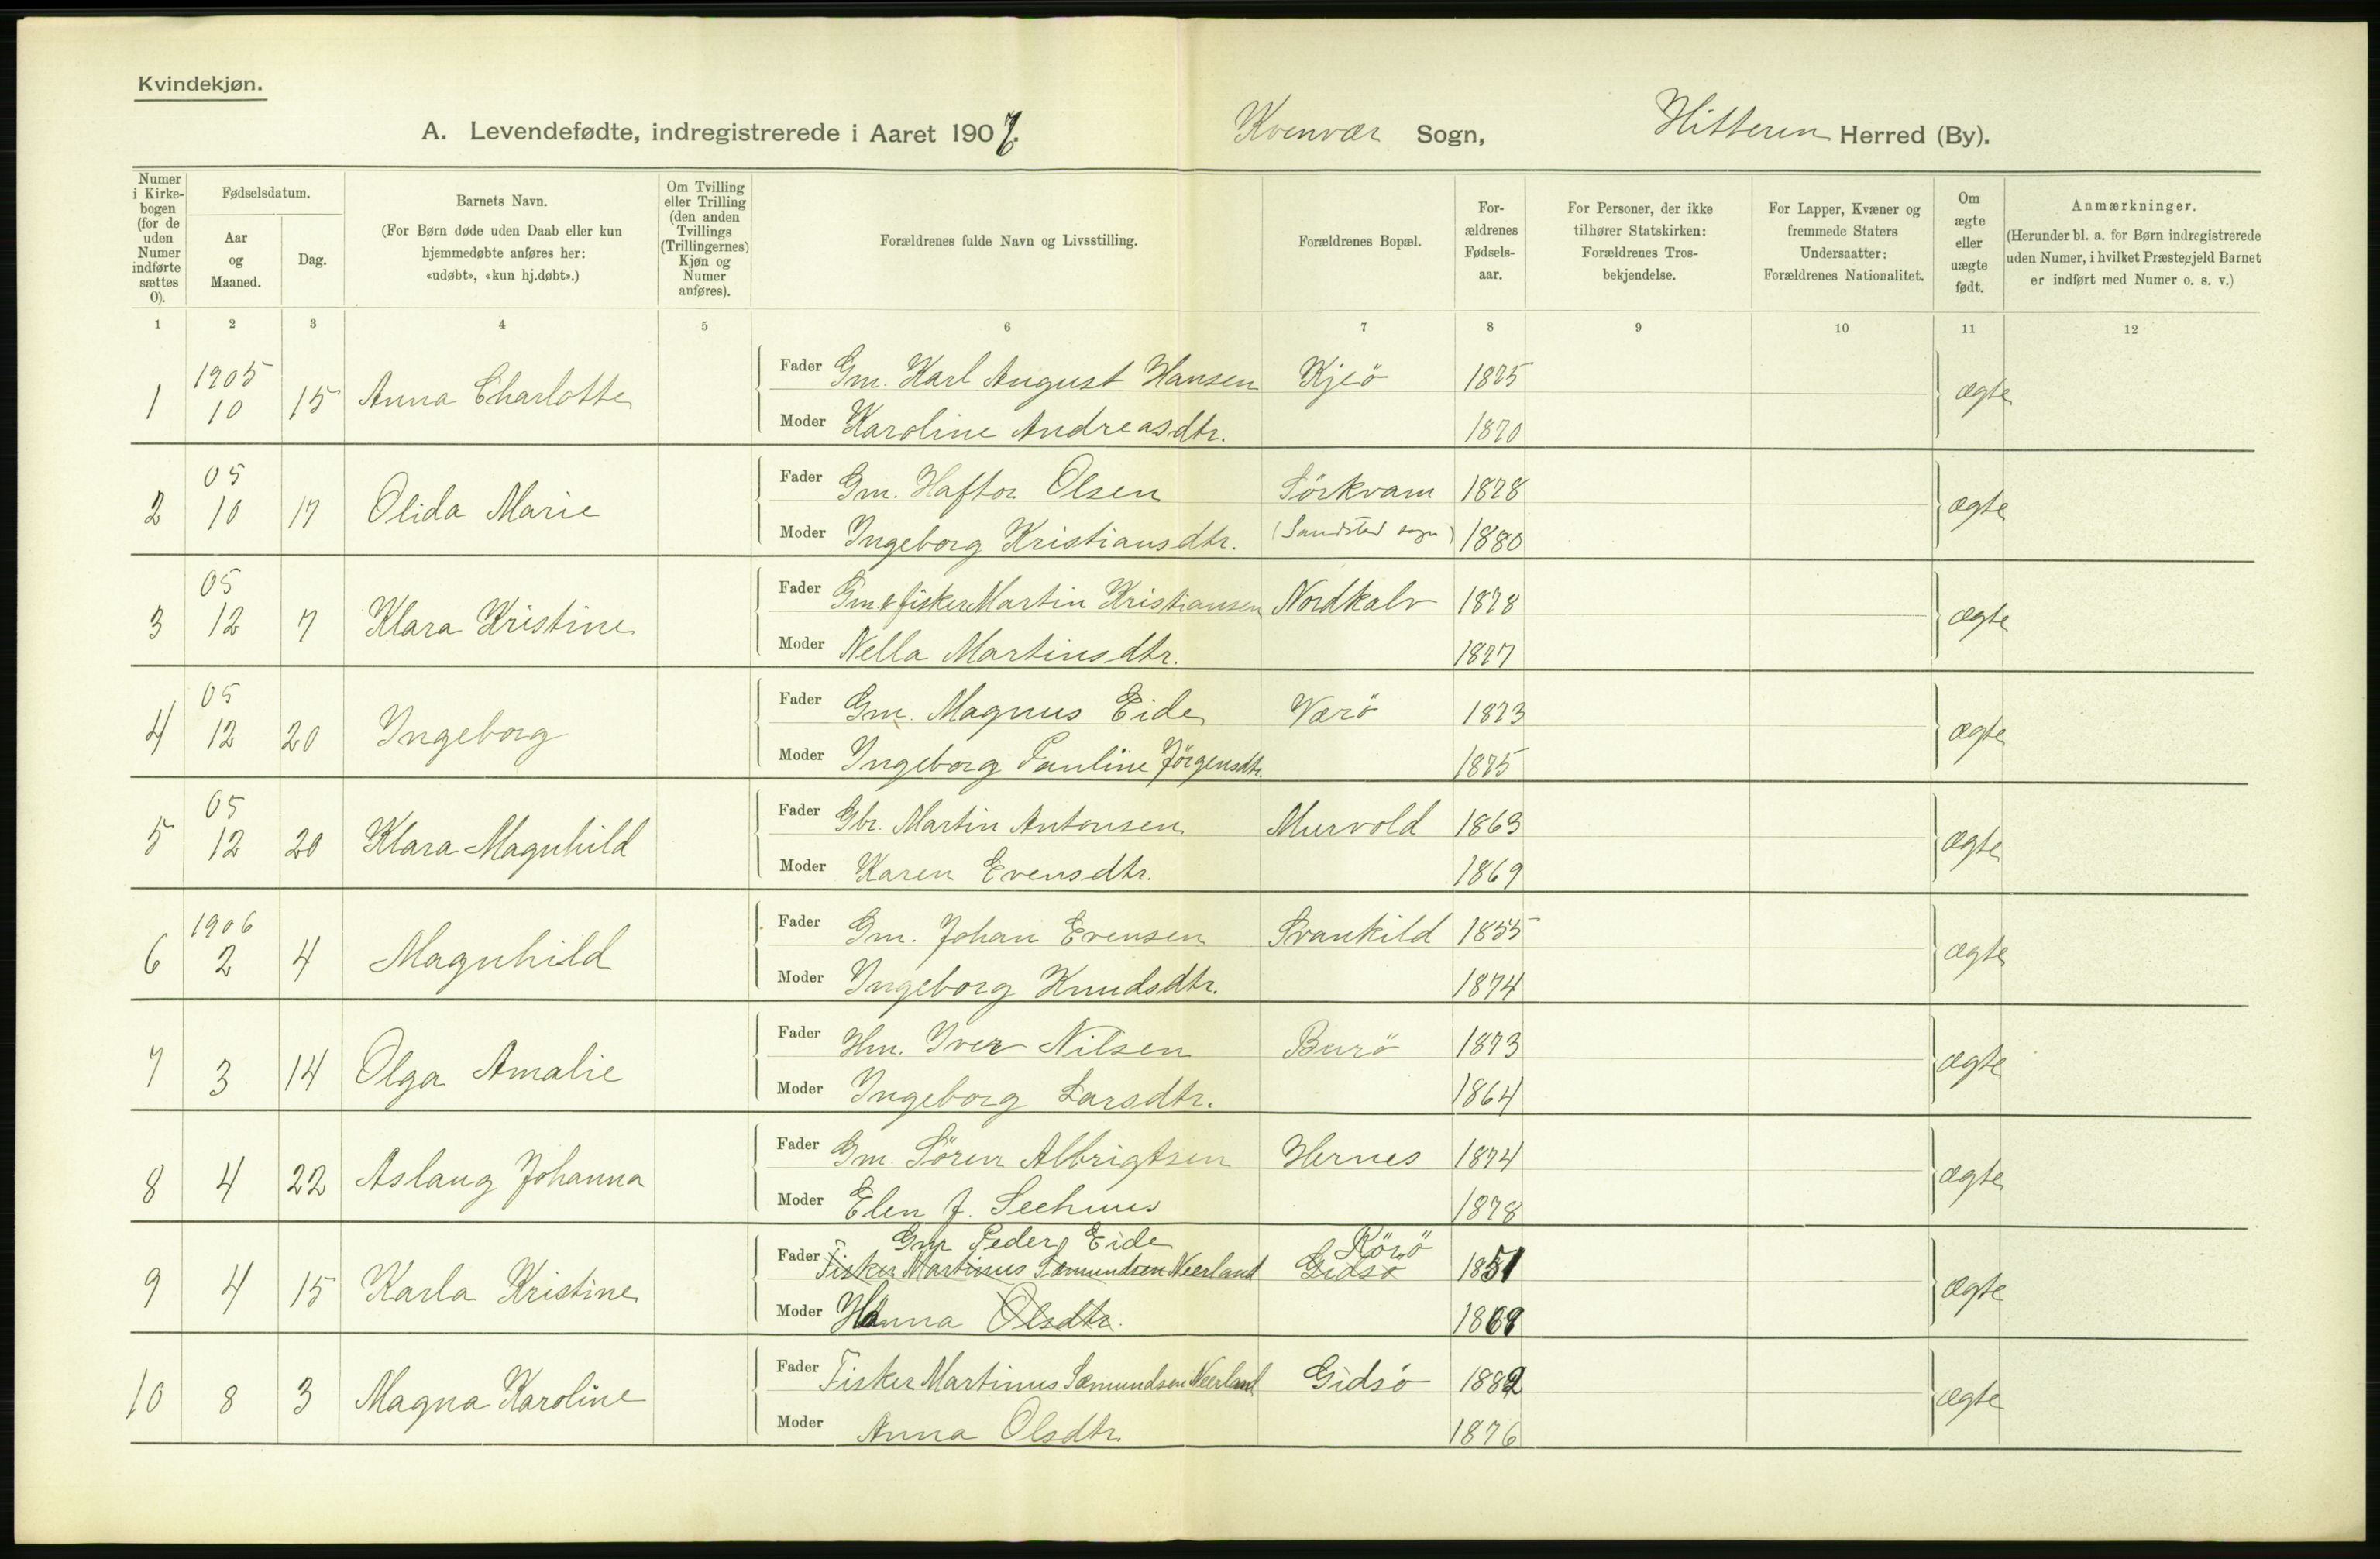 Kvindekjøn.
A. Levendefødte, indregistrerede i Aaret 190
Kvenvær Sogn,
Hitteren Herred (By).
Numer i Kirkebogen (for de uden Numer indførte sættes 0).
Fødselsdatum.
Aar og Maaned.
Dag.
Barnets Navn.
(For Børn døde uden Daab eller kun hjemmedøbte anføres her: «udøbt», «kun hj.døbt».)
Om Tvilling eller Trilling (den anden Tvillings (Trillingernes) Kjøn og Numer anføres).
Forældrenes fulde Navn og Livsstilling.
Forældrenes Bopæl.
Forældrenes Fødselsaar.
For Personer, der ikke tilhører Statskirken: Forældrenes Trosbekjendelse.
For Lapper, Kvæner og fremmede Staters Undersaatter: Forældrenes Nationalitet.
Om ægte eller uægte født.
Anmærkninger.
(Herunder bl. a. for Børn indregistrerede uden Numer, i hvilket Præstegjeld Barnet er indført med Numer o. s. v.)
1 2 3 4 5 6 7 8 9 10 11 12
1 1905 10 15 Anna Charlotte Fader Gm. Karl August Hansen Kjeö 1875 ægte
Moder Karoline Andreasdtr. 1870
2 05 10 17 Olida Marie Fader Gm. Haftor Olsen Sörkvam 1878 ægte
Moder Ingeborg Kristiansdtr. (Sandstad sogn) 1880
3 05 12 7 Klara Kristine Fader Gm. & fisker Martin Kristiansen Nordkalv 1878 ægte
Moder Nella Martinsdtr. 1877
4 05 12 20 Ingeborg Fader Gm. Magnus Eide Værö 1873 ægte
Moder Ingeborg Pauline Jörgensdtr. 1875
5 05 12 20 Klara Magnhild Fader Gbr. Martin Antonsen Murvold 1863 ægte
Moder Karen Evensdtr. 1869
6 1906 2 4 Magnhild Fader Gm. Johan Evensen Svankild 1855 ægte
Moder Ingeborg Knudsdtr. 1874
7 3 14 Olga Amalie Fader Hm. Iver Nilsen Burö 1873 ægte
Moder Ingeborg Larsdtr. 1864
8 4 22 Aslaug Johanna Fader Gm. Sören Albrigtsen Hernes 1874 ægte
Moder Elen J. 1878
Gm Peder Eide Rörö
9 4 15 Karla Kristine Fader Fisker Martinus Sæmundsen Neerland Gidsö 1851 ægte
Moder Hanna Olsdtr. 1868
10 8 3 Magna Karoline Fader Fisker Martinus Sæmundsen Neerland Gidsö 1882 ægte
Moder Anna Olsdtr. 1876